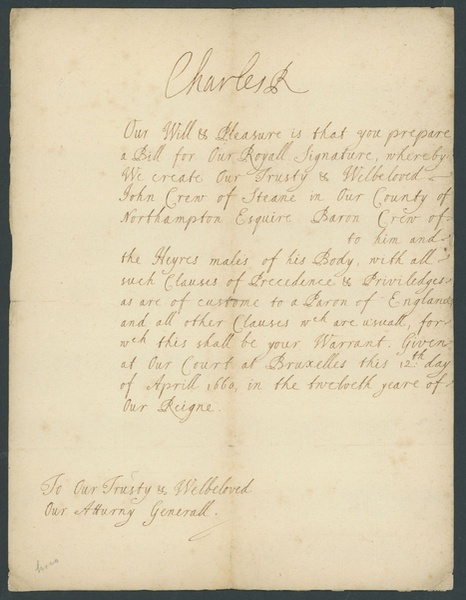 Charles R
Our Will & Pleasure is that you prepare
a Bill for Our Royall Signature, whereby
We create Our Trusty & Welbeloved
John Crew of Steane in Our County of
Northampton Esquire Baron Crew of
to him and
the Heyres males of his Body, with all
such Clauses of Precedence & Priviledges
as are of custome to a Baron of England
and all other Clauses wch are usuall, for
wch this shall be your Warrant. Given
at Our Court at Bruxelles this 12th day
of April 1660, in the twelveth yeare of
Our Reigne.
To Our Trusty & Welbeloved
Our Atturny Generall.